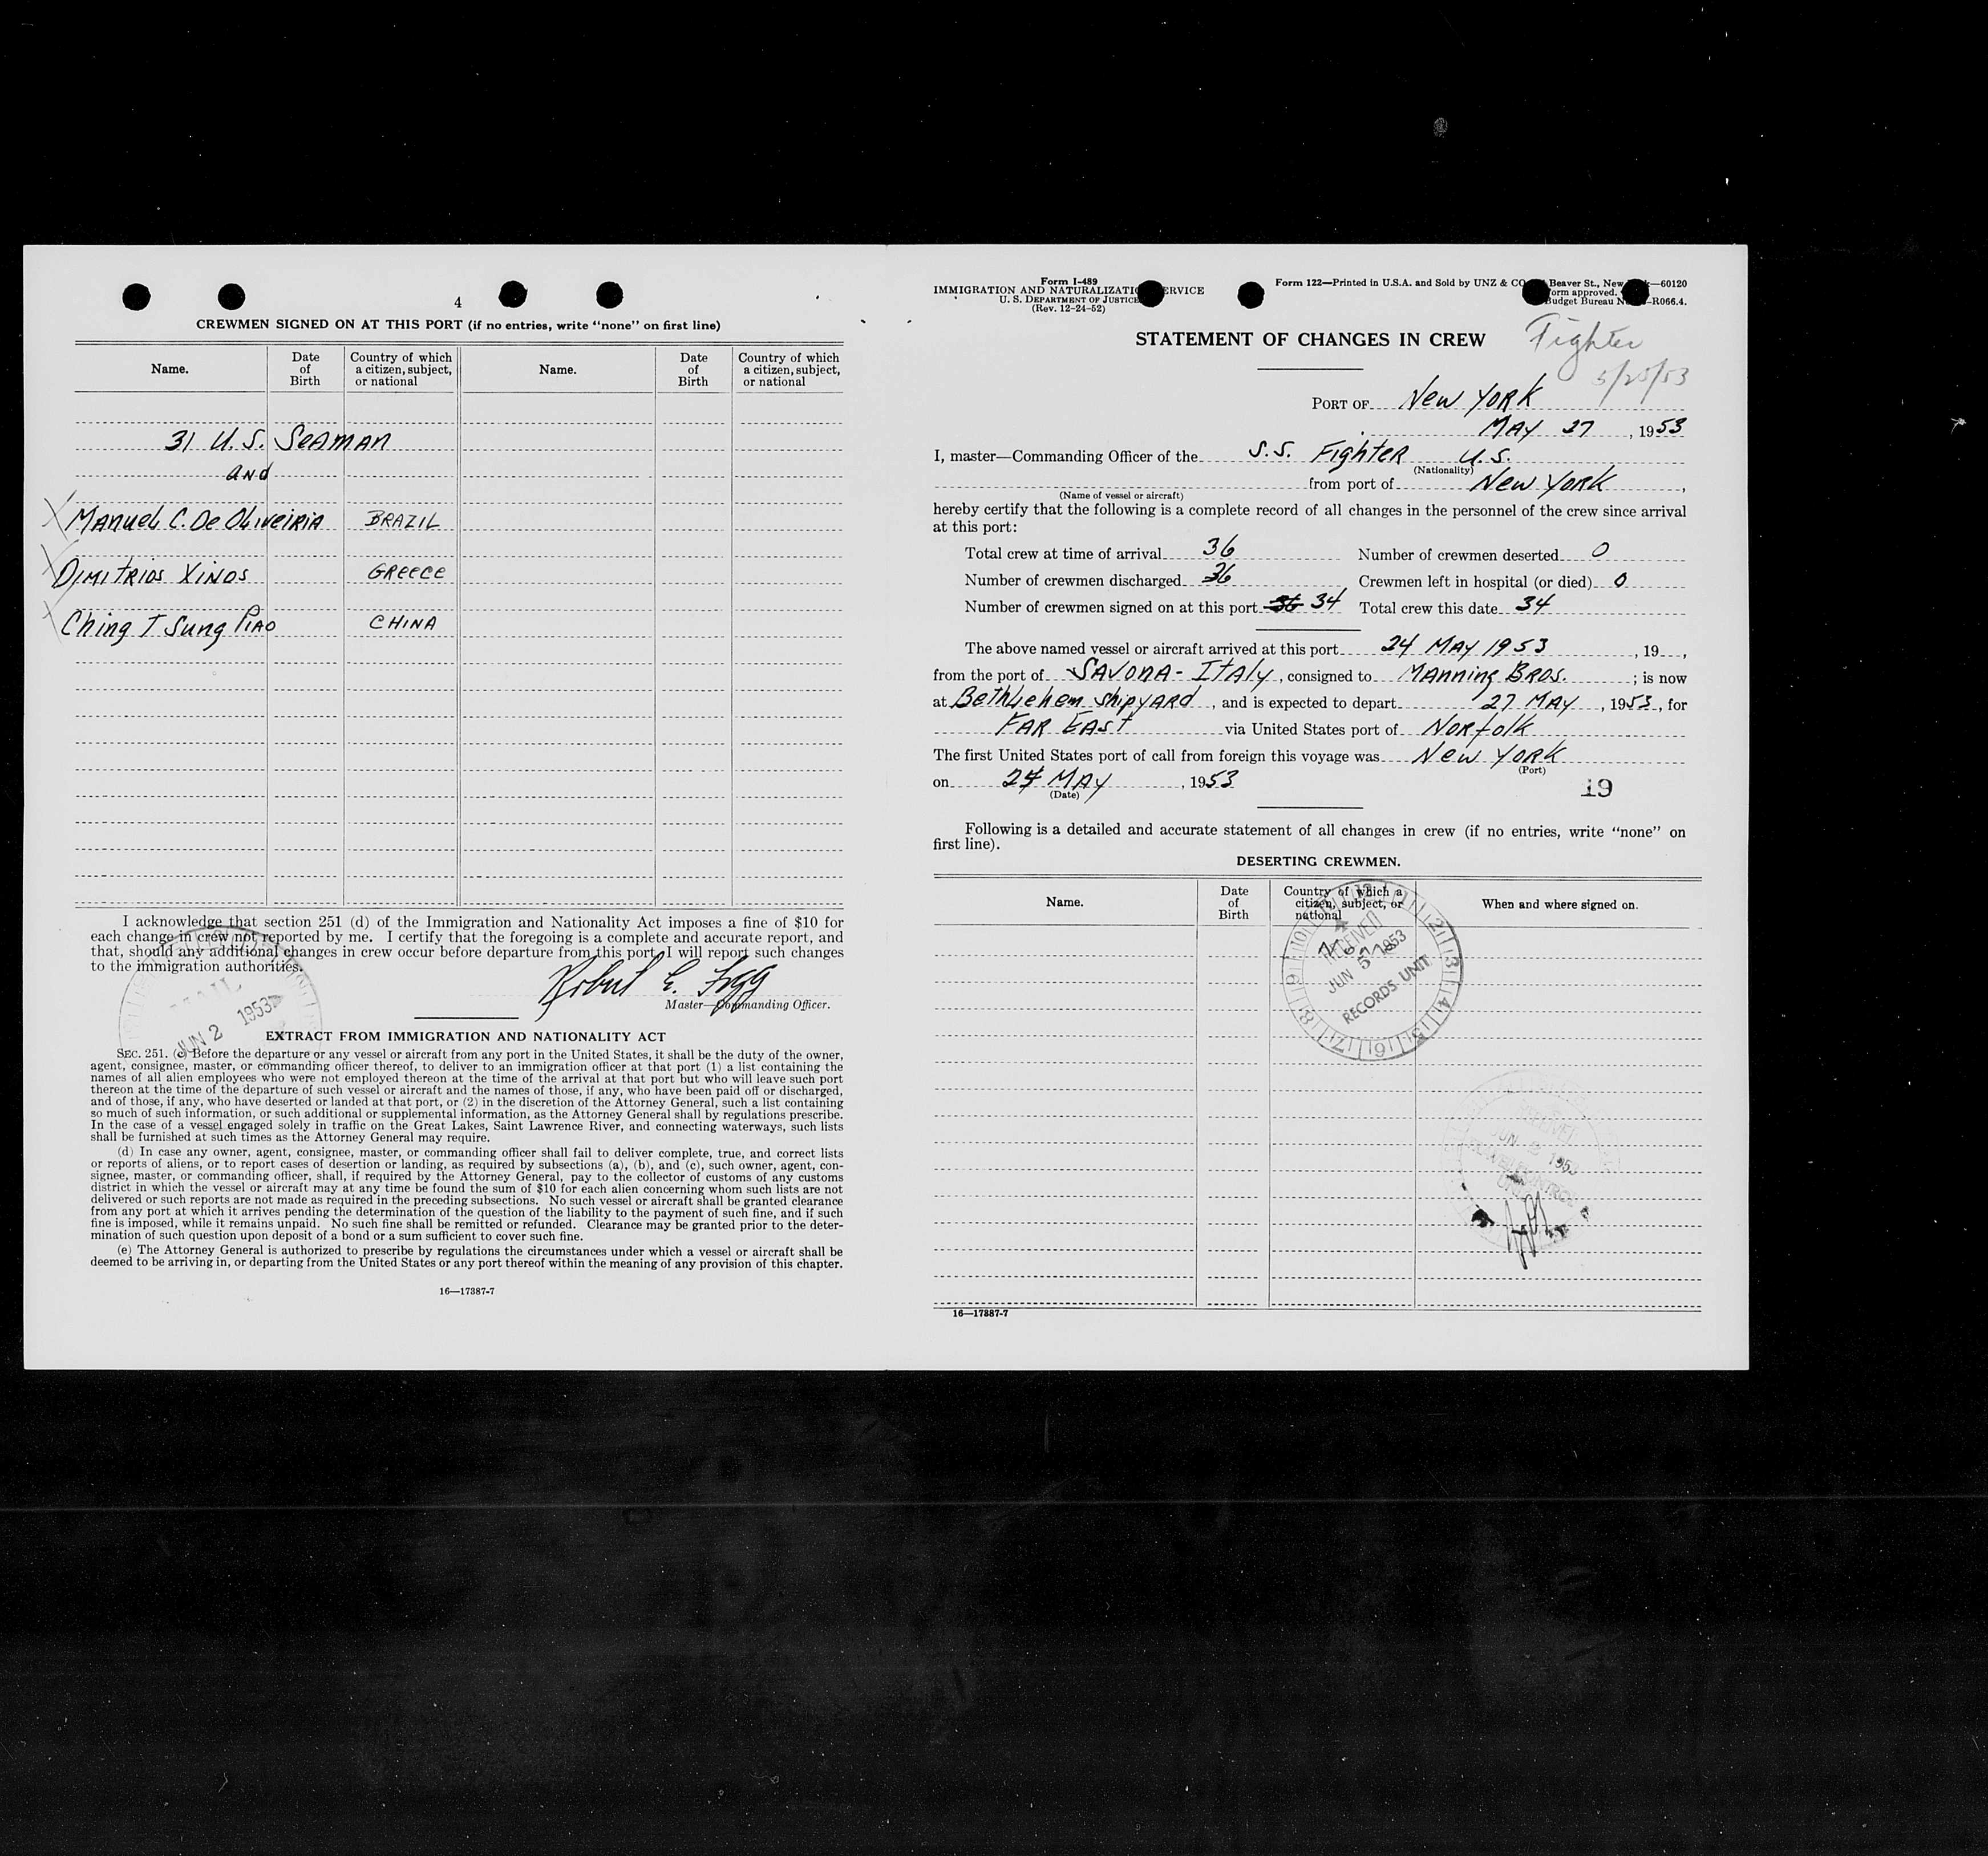 4
CREWMEN SIGNED ON AT THIS PORT (if no entries, write "none" on first line)
Name. Date of Birth Country of which a citizen, subject, or national Name. Date of Birth Country of which a citizen, subject, or national
31 U.S. SEAMAN
AND
X MANUEL C. De OLIVEIRIA BRAZIL
X DIMITRIOS XINOS GREECE
X Ching TSung PIAO CHINA
I acknowledge that section 251 (d) of the Immigration and Nationality Act imposes a fine of $10 for
each change in crew not reported by me. I certify that the foregoing is a complete and accurate report, and
that, should any additional changes in crew occur before departure from this port, I will report such changes
to the immigration authorities.
Robert E. Fogg
Master—Commanding Officer.
MAIL
JUN 2 1953
EXTRACT FROM IMMIGRATION AND NATIONALITY ACT
SEC. 251. (c) Before the departure or any vessel or aircraft from any port in the United States, it shall be the duty of the owner,
agent, consignee, master, or commanding officer thereof, to deliver to an immigration officer at that port (1) a list containing the
names of all alien employees who were not employed thereon at the time of the arrival at that port but who will leave such port
thereon at the time of the departure of such vessel or aircraft and the names of those, if any, who have been paid off or discharged,
and of those, if any, who have deserted or landed at that port, or (2) in the discretion of the Attorney General, such a list containing
so much of such information, or such additional or supplemental information, as the Attorney General shall by regulations prescribe.
In the case of a vessel engaged solely in traffic on the Great Lakes, Saint Lawrence River, and connecting waterways, such lists
shall be furnished at such times as the Attorney General may require.
(d) In case any owner, agent, consignee, master, or commanding officer shall fail to deliver complete, true, and correct lists
or reports of aliens, or to report cases of desertion or landing, as required by subsections (a), (b), and (c), such owner, agent, con-
signee, master, or commanding officer, shall, if required by the Attorney General, pay to the collector of customs of any customs
district in which the vessel or aircraft may at any time be found the sum of $10 for each alien concerning whom such lists are not
delivered or such reports are not made as required in the preceding subsections. No such vessel or aircraft shall be granted clearance
from any port at which it arrives pending the determination of the question of the liability to the payment of such fine, and if such
fine is imposed, while it remains unpaid. No such fine shall be remitted or refunded. Clearance may be granted prior to the deter-
mination of such question upon deposit of a bond or a sum sufficient to cover such fine.
(e) The Attorney General is authorized to prescribe by regulations the circumstances under which a vessel or aircraft shall be
deemed to be arriving in, or departing from the United States or any port thereof within the meaning of any provision of this chapter.
16—17387-7
Form I-489
IMMIGRATION AND NATURALIZATION SERVICE
U. S. DEPARTMENT OF JUSTICE
(Rev. 12-24-52)
Form 122—Printed in U.S.A. and Sold by UNZ & CO Beaver St., New —60120
Form approved.
Budget Bureau —R066.4.
STATEMENT OF CHANGES IN CREW
Fighter
5/25/53
PORT OF New YORK
MAY 27, 1953
I, master—Commanding Officer of the S.S. FIGHTER U.S.
(Nationality)
from port of New YORK,
(Name of vessel or aircraft)
hereby certify that the following is a complete record of all changes in the personnel of the crew since arrival
at this port:
Total crew at time of arrival 36 Number of crewmen deserted 0
Number of crewmen discharged 36 Crewmen left in hospital (or died) 0
Number of crewmen signed on at this port 36 34 Total crew this date 34
The above named vessel or aircraft arrived at this port 24 MAY 1953, 19 ,
from the port of SAVONA - ITALY, consigned to MANNING BROS. ; is now
at Bethlehem Shipyard, and is expected to depart 27 MAY, 1953, for
FAR EAST via United States port of NORFOLK
The first United States port of call from foreign this voyage was New YORK
(Port)
on 24 MAY, 1953
(Date)
19
Following is a detailed and accurate statement of all changes in crew (if no entries, write "none" on
first line).
DESERTING CREWMEN.
Name. Date of Birth Country of which a citizen, subject, or national When and where signed on.
RECEIVED
JUN 5 1953
RECORDS UNIT
JUN 2 195
16—17387-7